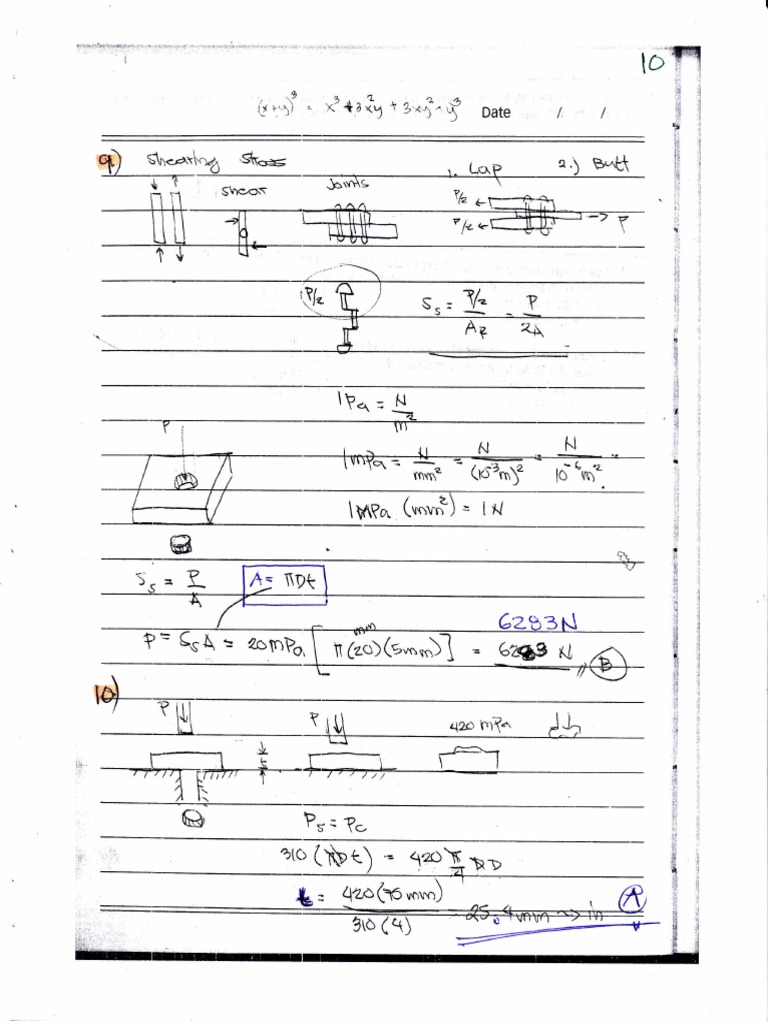 10
(x+y)³ = x³ + 3x²y + 3xy² + y³ Date / /
9.) Shearing Stress
1. Lap 2.) Butt
shear Joints
P/2
P/2 P
P/2 Sₛ = P/2 / A_R = P / 2A
1Pa = N / m²
P
1mPa = N / mm² = N / (10⁻³m)² = N / 10⁻⁶m²
1MPa (mm²) = 1N
Sₛ = P / A A = πDt
6283N
P = SₛA = 20mPa [π(20mm)(5mm)] = 6283 N B
10)
P P 420 mPa
t
Pₛ = Pc
310 (πDt) = 420 π/4 DD
t = 420(75mm) / 310(4) = 25.4mm → in A